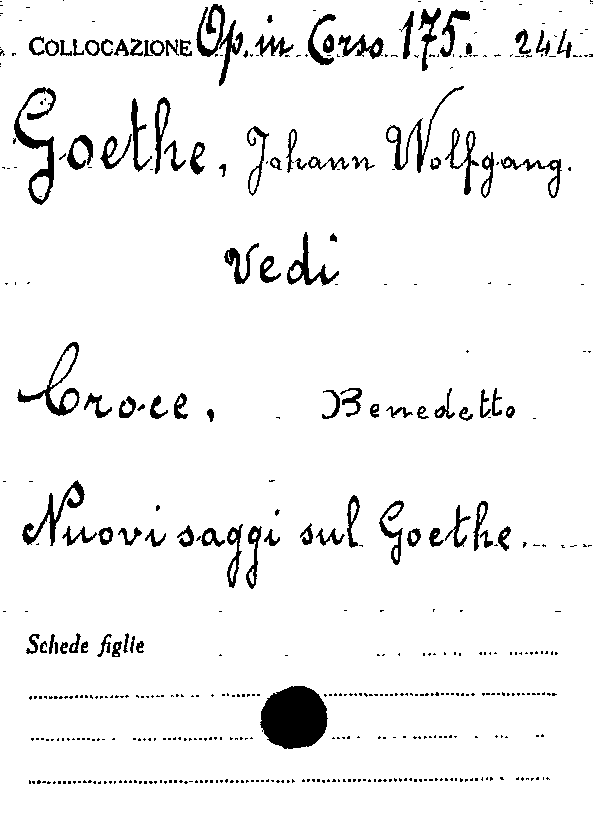 COLLOCAZIONE Op. in Corso 175. 244
Goethe, Johann Wolfgang.
Vedi
Croce, Benedetto
Nuovi saggi sul Goethe.
Schede figlie